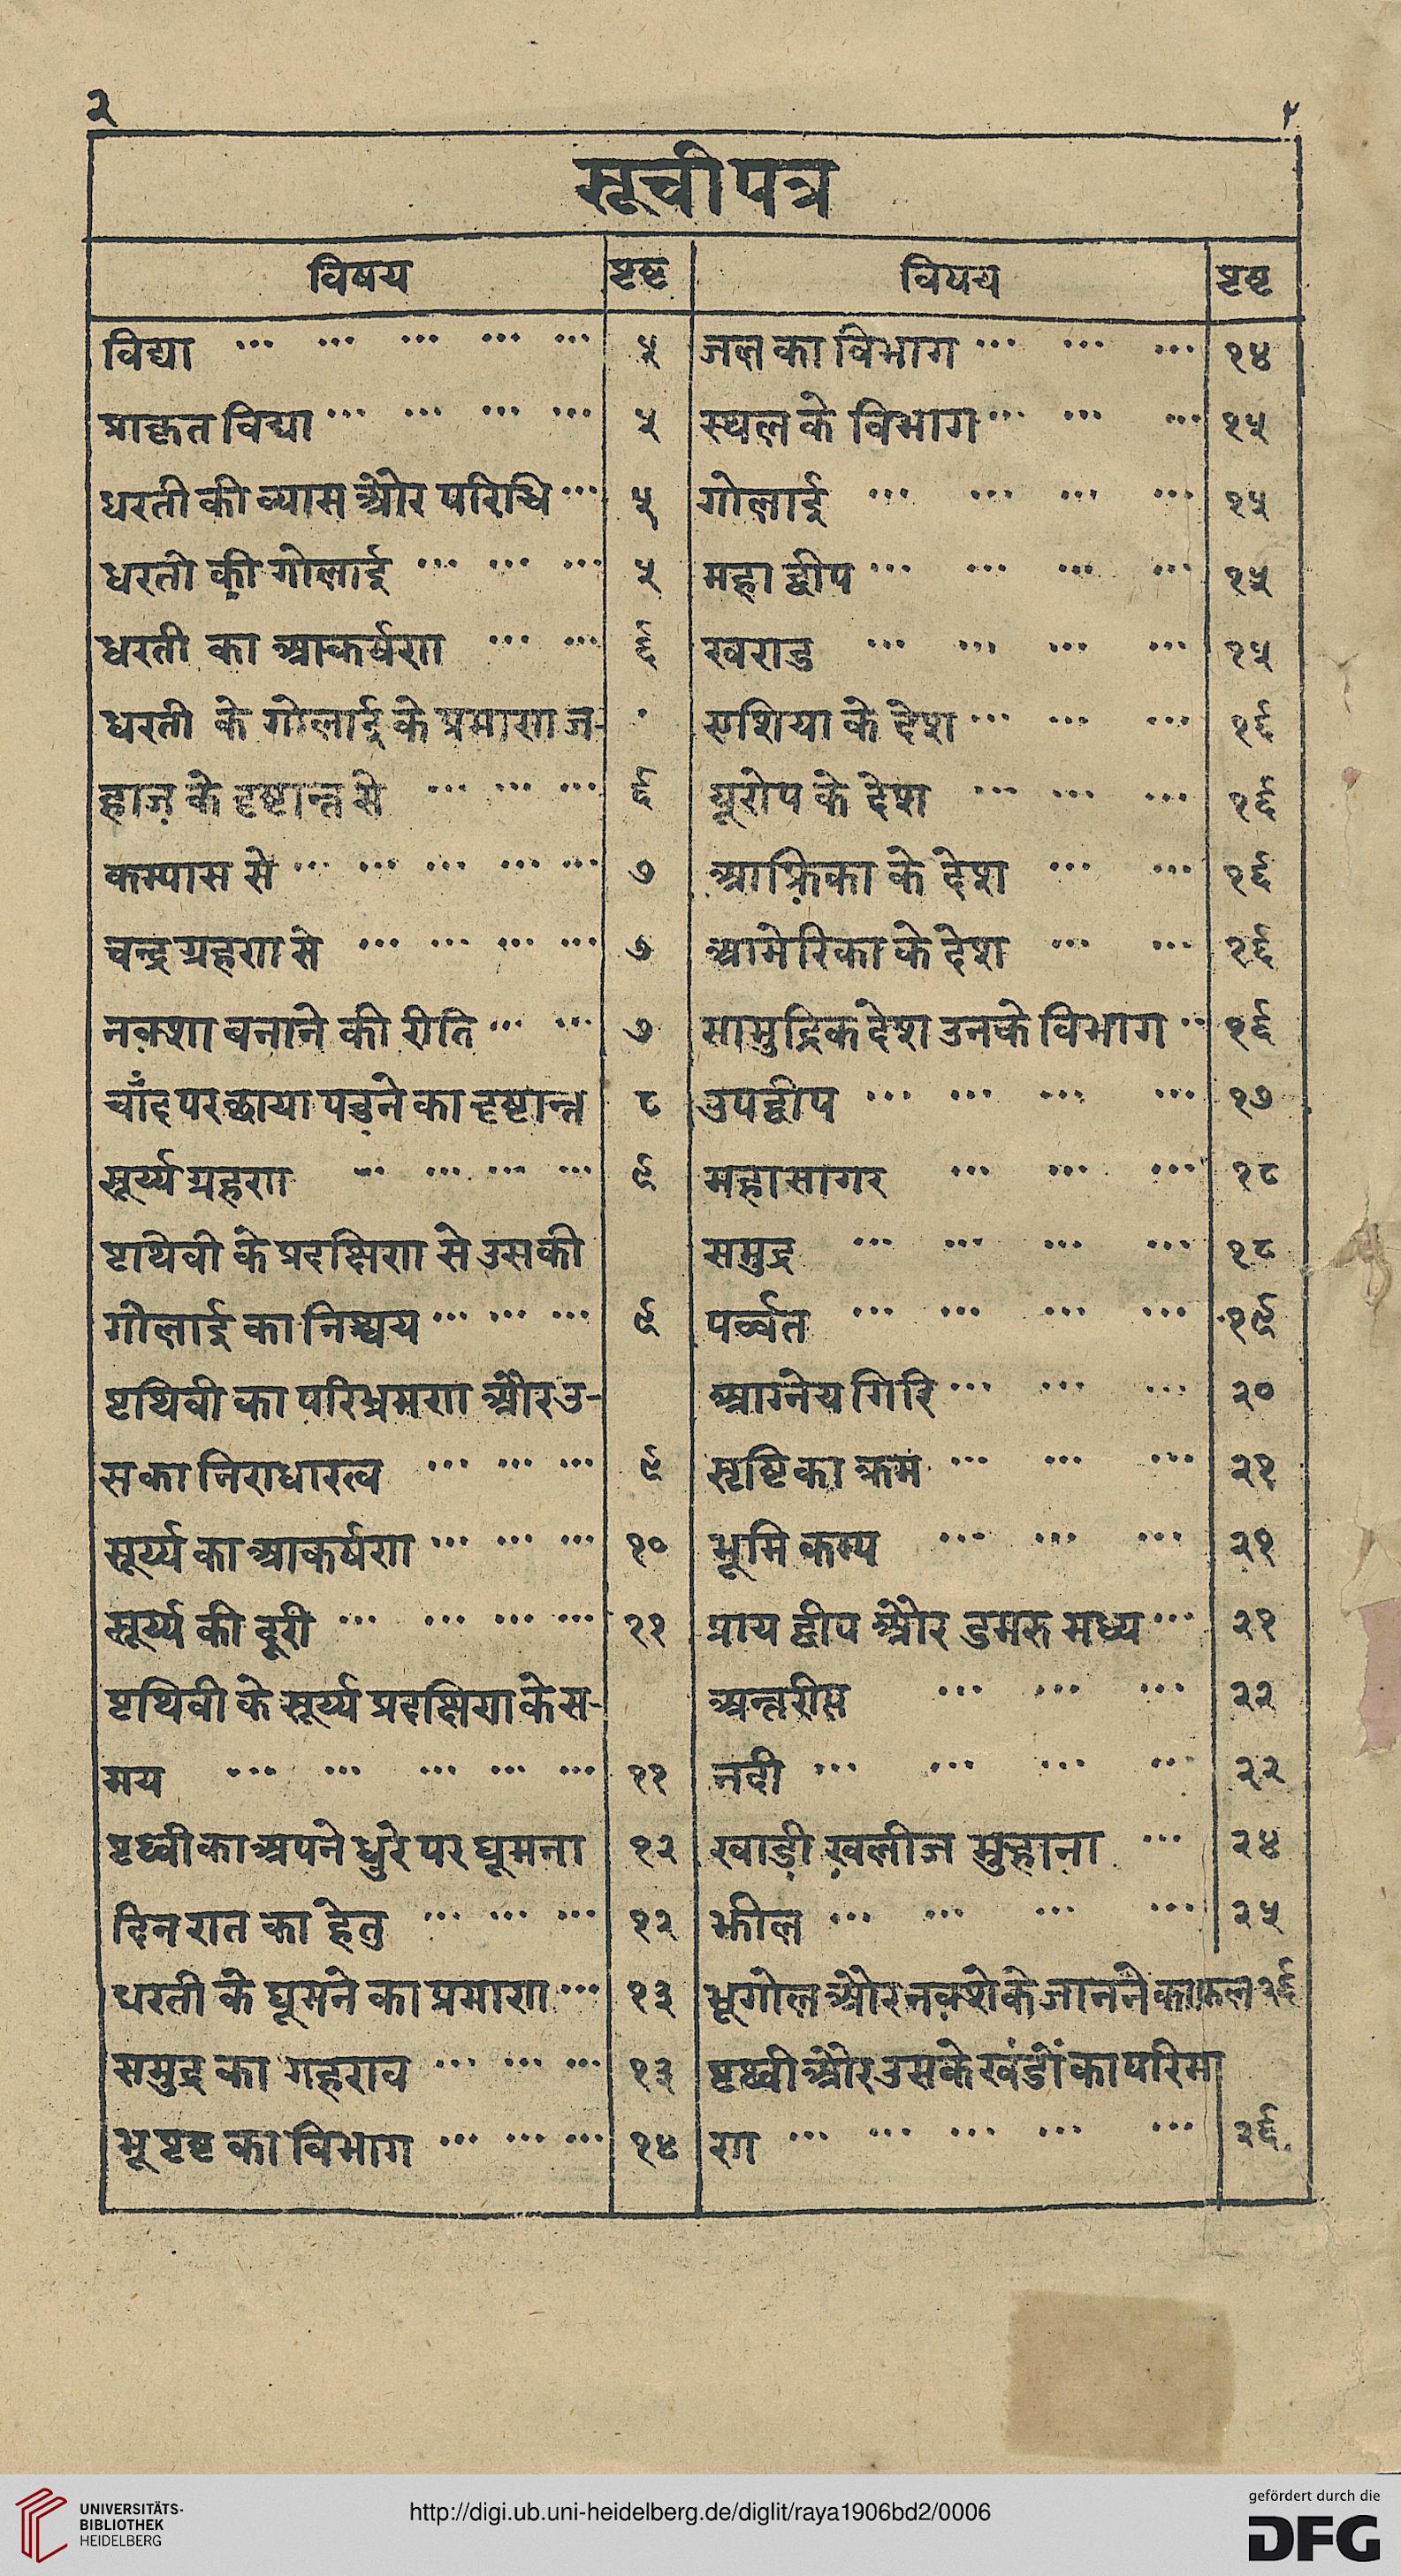 २
सूचीपत्र
विषय पृष्ठ
विद्या ... ... ... ... ... ५
प्राकृत विद्या ... ... ... ... ५
धरती की व्यास और परिधि ... ५
धरती की गोलाई ... ... ... ५
धरती का आकर्षण ... ... ६
धरती के गोलाई के प्रमाण ज-
हाज़ के दृष्टान्त से ... ... ... ६
कम्पास से ... ... ... ... ... ७
चन्द्र ग्रहण से ... ... ... ... ७
नक़्शा बनाने की रीति ... ... ७
चाँद पर छाया पड़ने का दृष्टान्त ८
सूर्य्य ग्रहण ... ... ... ... ९
पृथिवी के प्रदक्षिण से उसकी
गोलाई का निश्चय ... ... ... ९
पृथिवी का परिभ्रमण और उ-
सका निराधारत्व ... ... ... ९
सूर्य्य का आकर्षण ... ... ... १०
सूर्य्य की दूरी ... ... ... ... ११
पृथिवी के सूर्य्य प्रदक्षिण के स-
मय ... ... ... ... ... ११
पृथ्वी का अपने धुरे पर घूमना १२
दिन रात का हेतु ... ... ... १२
धरती के घूमने का प्रमाण ... १३
समुद्र का गहराव ... ... ... १३
भू पृष्ठ का विभाग ... ... ... १४
विषय पृष्ठ
जल का विभाग ... ... ... १४
स्थल के विभाग ... ... ... १५
गोलार्द्ध ... ... ... ... १५
महा द्वीप ... ... ... ... १५
खण्ड ... ... ... ... १५
एशिया के देश ... ... ... १६
यूरोप के देश ... ... ... १६
आफ़्रिका के देश ... ... १६
आमेरिका के देश ... ... १६
सामुद्रिक देश उनके विभाग .. १६
उपद्वीप ... ... ... ... १७
महासागर ... ... ... १८
समुद्र ... ... ... ... १८
पर्व्वत ... ... ... ... १९
आग्नेय गिरि ... ... ... २०
सृष्टि का क्रम ... ... ... २१
भूमि कम्प ... ... ... २१
प्राय द्वीप और डमरु मध्य ... २१
अन्तरीप ... ... ... २२
नदी ... ... ... ... २२
खाड़ी ख़लीज मुहाना ... २४
झील ... ... ... ... २५
भूगोल और नक़्शे के जानने का फल २६
पृथ्वी और उसके खंडों का परिमा
ण ... ... ... ... ... २६
UNIVERSITÄTS-
BIBLIOTHEK
HEIDELBERG
http://digi.ub.uni-heidelberg.de/diglit/raya1906bd2/0006
gefördert durch die
DFG